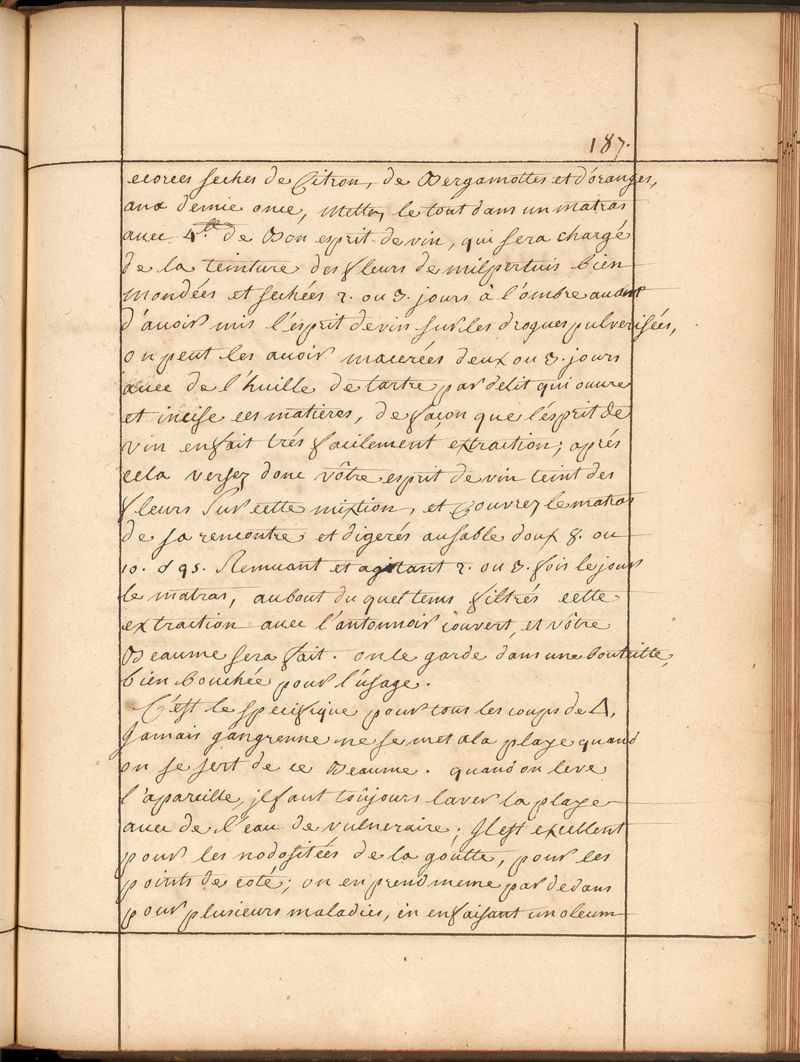 187.
ecorces seches de Citron, de Bergamottes et d'oranges,
ana demie once, Mettez le tout dans un matras
avec 4.lt de Bon esprit de vin, qui sera chargé
de la teinture des fleurs de milpertuis bien
mondées et sechées 2. ou 3. jours à l'ombre avant
d'avoir mis l'esprit de vin sur les drogues pulverisées,
on peut les avoir macerées deux ou 3. jours
avec de l'huille de tartre par delit qui ouvre
et incise ces matieres, de façon que l'esprit de
vin en fait trés facilement éxtraction; aprés
cela versez donc vôtre esprit de vin teint des
fleurs Sur cette mixtion, et Couvrez le matras
de sa rencontre et digerés au sable doux 8. ou
10. Remuant et agitant 2. ou 3. fois le jour
le matras, au bout du quel tems filtrés cette
extraction avec l'antonnoir couvert, et vôtre
Beaume sera fait. on le garde dans une bouteille,
bien bouchée pour l'usage.
C'est le specifique pour tous les coups de △,
Jamais gangrenne ne se met a la playe quand
on se sert de ce Beaume. quand on leve
l'apareille, jl faut toûjours laver la playe
avec de l'eau de vulneraire; Jl est excellent
pour les nodositées de la goûtte, pour les
points de coté; on en prend meme par dedans
pour plusieurs maladies, en en faisant un oleum